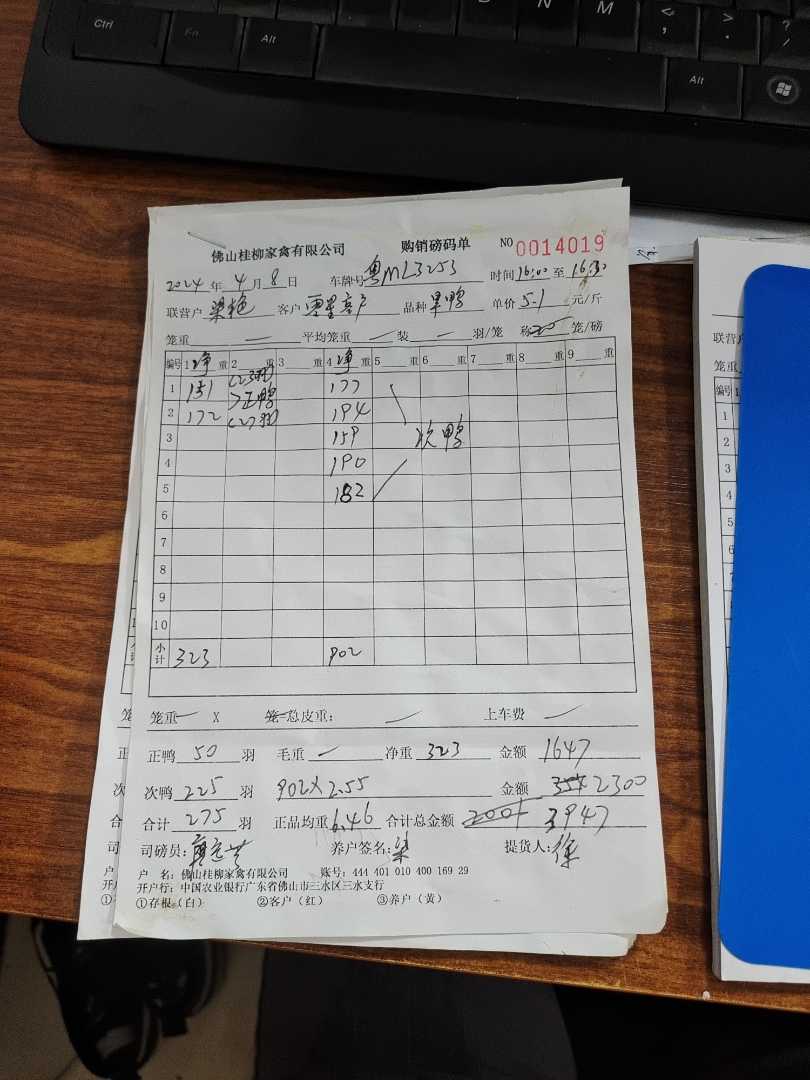 Ctrl Fn Alt N M < , > . ? / Alt
佛山桂柳家禽有限公司 购销磅码单 NO 0014019
2024年4月8日 车牌号粤ML3253 时间16:00至16:30
联营户 梁艳 客户 零星客户 品种 果鸭 单价 5.1 元/斤
笼重 — 平均笼重 — 装 — 羽/笼 称 笼/磅
编号 1净重 2 重 3 重 4净重 5 重 6 重 7 重 8 重 9 重
1 151 (23羽) 177
>正鸭
2 172 (27羽) 194
3 159 次鸭
4 190
5 182
6
7
8
9
10
小计 323 902
笼重— X 笼=总皮重: — 上车费 —
正鸭 50 羽 毛重 — 净重 323 金额 1647
次鸭 225 羽 902×2.55 金额 2300
合计 275 羽 正品均重 6.46 合计总金额 3947
司磅员: 养户签名: 梁 提货人: 徐
户 名: 佛山桂柳家禽有限公司 账号: 444 401 010 400 169 29
开户行: 中国农业银行广东省佛山市三水区三水支行
①存根(白) ②客户(红) ③养户(黄)
联营户
笼重
编号 1
1
2
3
4
5
6
7
8
9